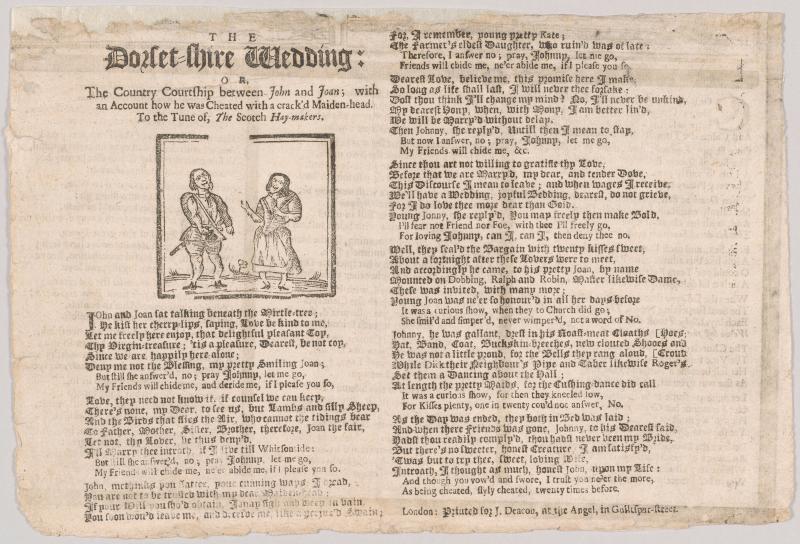 THE
Dorset-shire Wedding:
OR,
The Country Courtship between John and Joan; with
an Account how he was Cheated with a crack'd Maiden-head.
To the Tune of, The Scotch Hay-makers.
JOhn and Joan sat talking beneath the Mirtle-tree;
He kist her cherry-lips, saying, Love be kind to me,
Let me freely here enjoy, that delightful pleasant Toy,
Thy Virgin-treasure; 'tis a pleasure, Dearest, be not coy,
Since we are happily here alone;
Deny me not the Blessing, my pretty Smiling Joan;
But still she answer'd, no; pray Johnny, let me go,
My Friends will chide me, and deride me, if I please you so,
Love, they need not know it, if counsel we can keep,
There's none, my Dear, to see us, but Lambs and silly Sheep,
And the Birds that flies the Air, who cannot the tidings bear
To Father, Mother, Sister, Brother, therefore, Joan the fair,
Let not, thy Lover, be thus deny'd,
I'll Marry thee introth, if I live till Whitsontide:
But still she answer'd, no; pray Johnny, let me go,
My Friends will chide me, ne'er abide me, if I please you so.
John, methinks you flatter, your cunning ways I dread,
You are not to be trusted with my dear Maiden-head;
If your Will you sho'd obtain, I may sigh and weep in vain,
You soon wou'd leave me, and deceive me, like a perjur'd Swain;
For, I remember, young pretty Kate;
The Farmer's eldest Daughter, who ruin'd was of late:
Therefore, I answer no; pray, Johnny, let me go,
Friends will chide me, ne'er abide me, if I please you so.
Dearest Love, believe me, this promise here I make,
So long as life shall last, I will never thee forsake:
Dost thou think I'll change my mind? No, I'll never be unkind,
My dearest Hony, when, with Mony, I am better lin'd,
We will be Marry'd without delay.
Then Johnny, she reply'd, Untill then I mean to stay,
But now I answer, no; pray, Johnny, let me go,
My Friends will chide me, &c.
Since thou art not willing to gratifie thy Love,
Before that we are Marry'd, my dear, and tender Dove,
This Discourse I mean to leave; and when wages I receive,
We'll have a Wedding, joyful Bedding, dearest, do not grieve,
For I do love thee more dear than Gold.
Young Jonny, she reply'd, You may freely then make Bold,
I'll fear not Friend nor Foe, with thee I'll freely go,
For loving Johnny, can I, can I, then deny thee no.
Well, they seal'd the Bargain with twenty kisses sweet,
About a fortnight after these Lovers were to meet,
And accordingly he came, to his pretty Joan, by name
Mounted on Dobbing, Ralph and Robin, Master likewise Dame,
These was invited, with many more;
Young Joan was ne'er so honour'd in all her days before
It was a curious show, when they to Church did go;
She smil'd and simper'd, never wimper'd, not a word of No.
Johnny, he was gallant, drest in his Roast-meat Cloaths [Hoes;
Hat, Band, Coat, Buckskin-breeches, new clouted Shooes and
He was not a little proud, for the Bells they rang aloud, [Croud
While Dick their Neighbour's Pipe and Taber likewise Roger's
Set them a Dancing about the Hall;
At length the pretty Maids, for the Cushing-dance did call
It was a curio s show, for then they kneeled low,
For Kisses plenty, one in twenty cou'd not answer, No.
As the Day was ended, they both in Bed was laid;
And when there Friends was gone, Johnny, to his Dearest said,
Hadst thou readily comply'd, thou hadst never been my Bride,
But there's no sweeter, honest Creature, I am satisfy'd,
'Twas but to try thee, sweet, loving Wife.
Introath, I thought as much, honest John, upon my Life:
And though you vow'd and swore, I trust you ne'er the more,
As being cheated, slyly cheated, twenty times before.
London: Printed for J. Deacon, at the Angel, in Guiltspur-street.